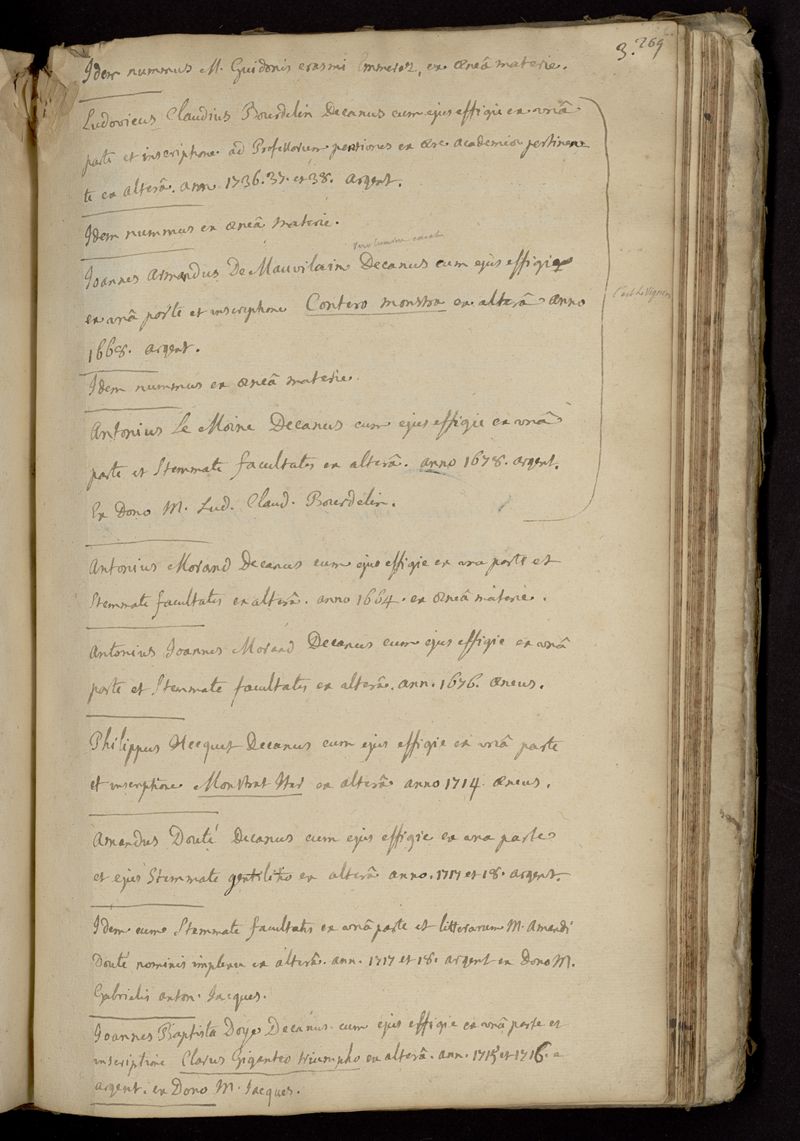 3. 269
Idem nummus M. Guidonis erasmi Emmerez, ex æneâ materie.
Ludovicus Claudius Bourdelin Decanus cum ejus effigie ex unâ
parte et inscriptione ad Professorum pensiones ex ære academiæ pertinen
te ex alterâ. ann. 1736. 37. et 38. argent.
Idem nummus ex æneâ materie.
Joannes Armandus De Mauvilain Decanus cum ejus effigie
ex unâ parte et inscriptione Contero monstra ex alterâ anno
1668. argent.
Idem nummus ex æneâ materie.
Antonius Le Moine Decanus cum ejus effigie ex unâ
parte et Stemmate facultatis ex alterâ. anno 1678. argent.
Ex Dono M. Lud. Claud. Bourdelin.
Antonius Morand Decanus cum ejus effigie ex una parte et
Stemmate facultatis ex alterâ. anno 1664. ex æneâ materie.
Antonius Joannes Morand Decanus cum ejus effigie ex unâ
parte et Stemmate facultatis ex alterâ. ann. 1676. æneus.
Philippus Hecquet Decanus cum ejus effigie ex unâ parte
et inscriptione Monstrat Iter ex alterâ anno 1714. æneus.
Amandus Douté Decanus cum ejus effigie ex una parte
et ejus Stemmate gentilitio ex alterâ anno. 1717 et 18. argent.
Idem cum Stemmate facultatis ex unâ parte et litterarum M. Amandi
Douté nominis implexu ex alterâ. ann. 1717 et 18. argent ex Dono M.
Gabrielis anton. Jacques.
Joannes Baptista Doye Decanus cum ejus effigie ex unâ parte et
inscriptione Clarus Giganteo triumpho ex alterâ. ann. 1715 et 1716.
argent. ex Dono M. Jacques.